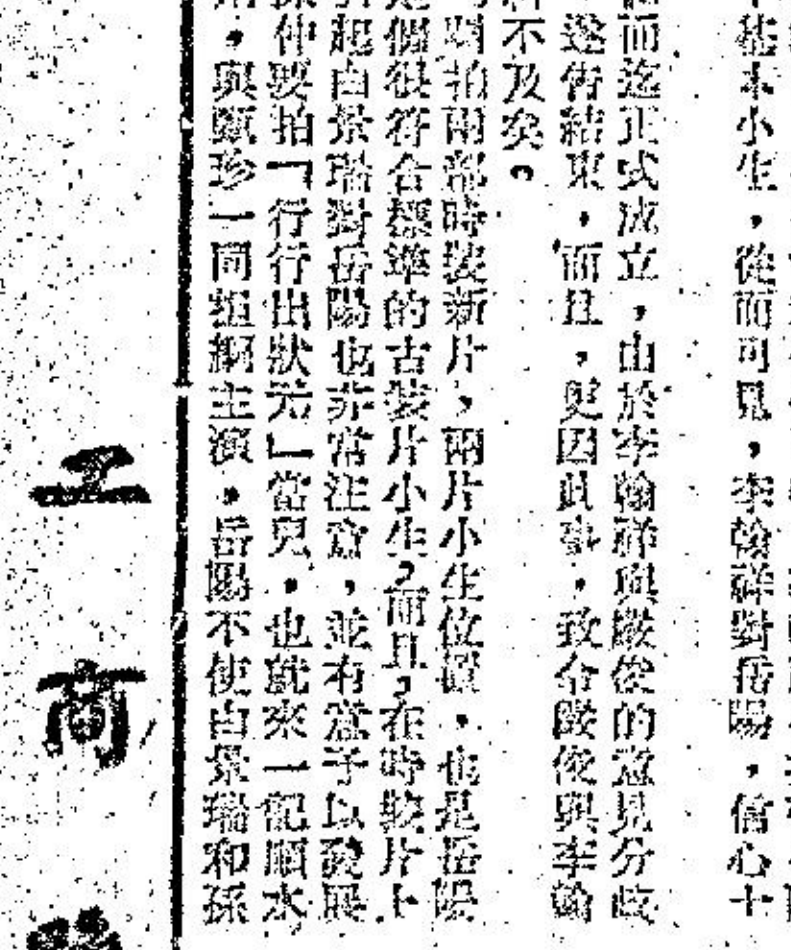 本基本小生，從而可見，李翰祥對岳陽，信心十
而迄正式成立，由於李翰祥與嚴俊的意見分歧
，遂告結束，而且，更因此事，致令嚴俊與李翰
不及矣。
拍兩部時裝新片，兩片小生位置，也是岳陽
個很符合標準的古裝片小生，而且，在時裝片上
起由景瑞對岳陽也非常注意，並有意予以發展
仲要拍「行行出狀元」當兒，也就來一記順水
，與甄珍一同担綱主演，岳陽不使白景瑞和孫
工商